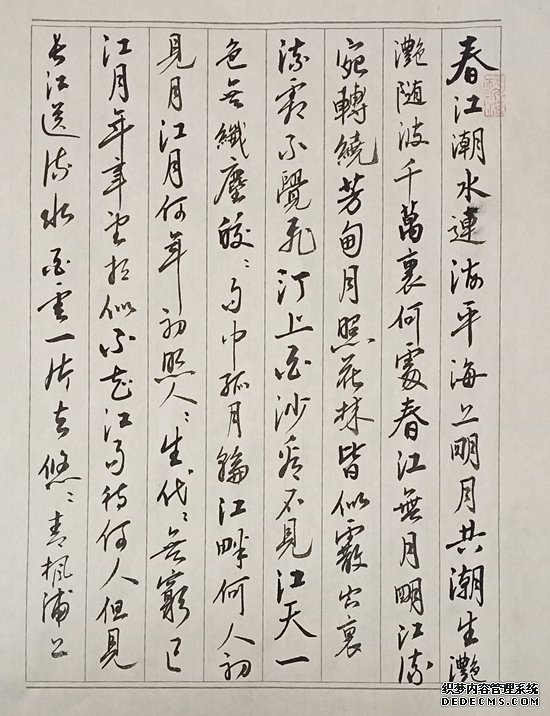 春江潮水連海平海上明月共潮生灧
灧随波千萬裏何處春江無月明江流
宛轉繞芳甸月照花林皆似霰空裏
流霜不覺飛汀上白沙看不見江天一
色無纖塵皎〻空中孤月輪江畔何人初
見月江月何年初照人〻生代〻無窮已
江月年年望相似不知江月待何人但見
長江送流水白雲一片去悠〻青楓浦上
织梦内容管理系统
DEDECMS.COM